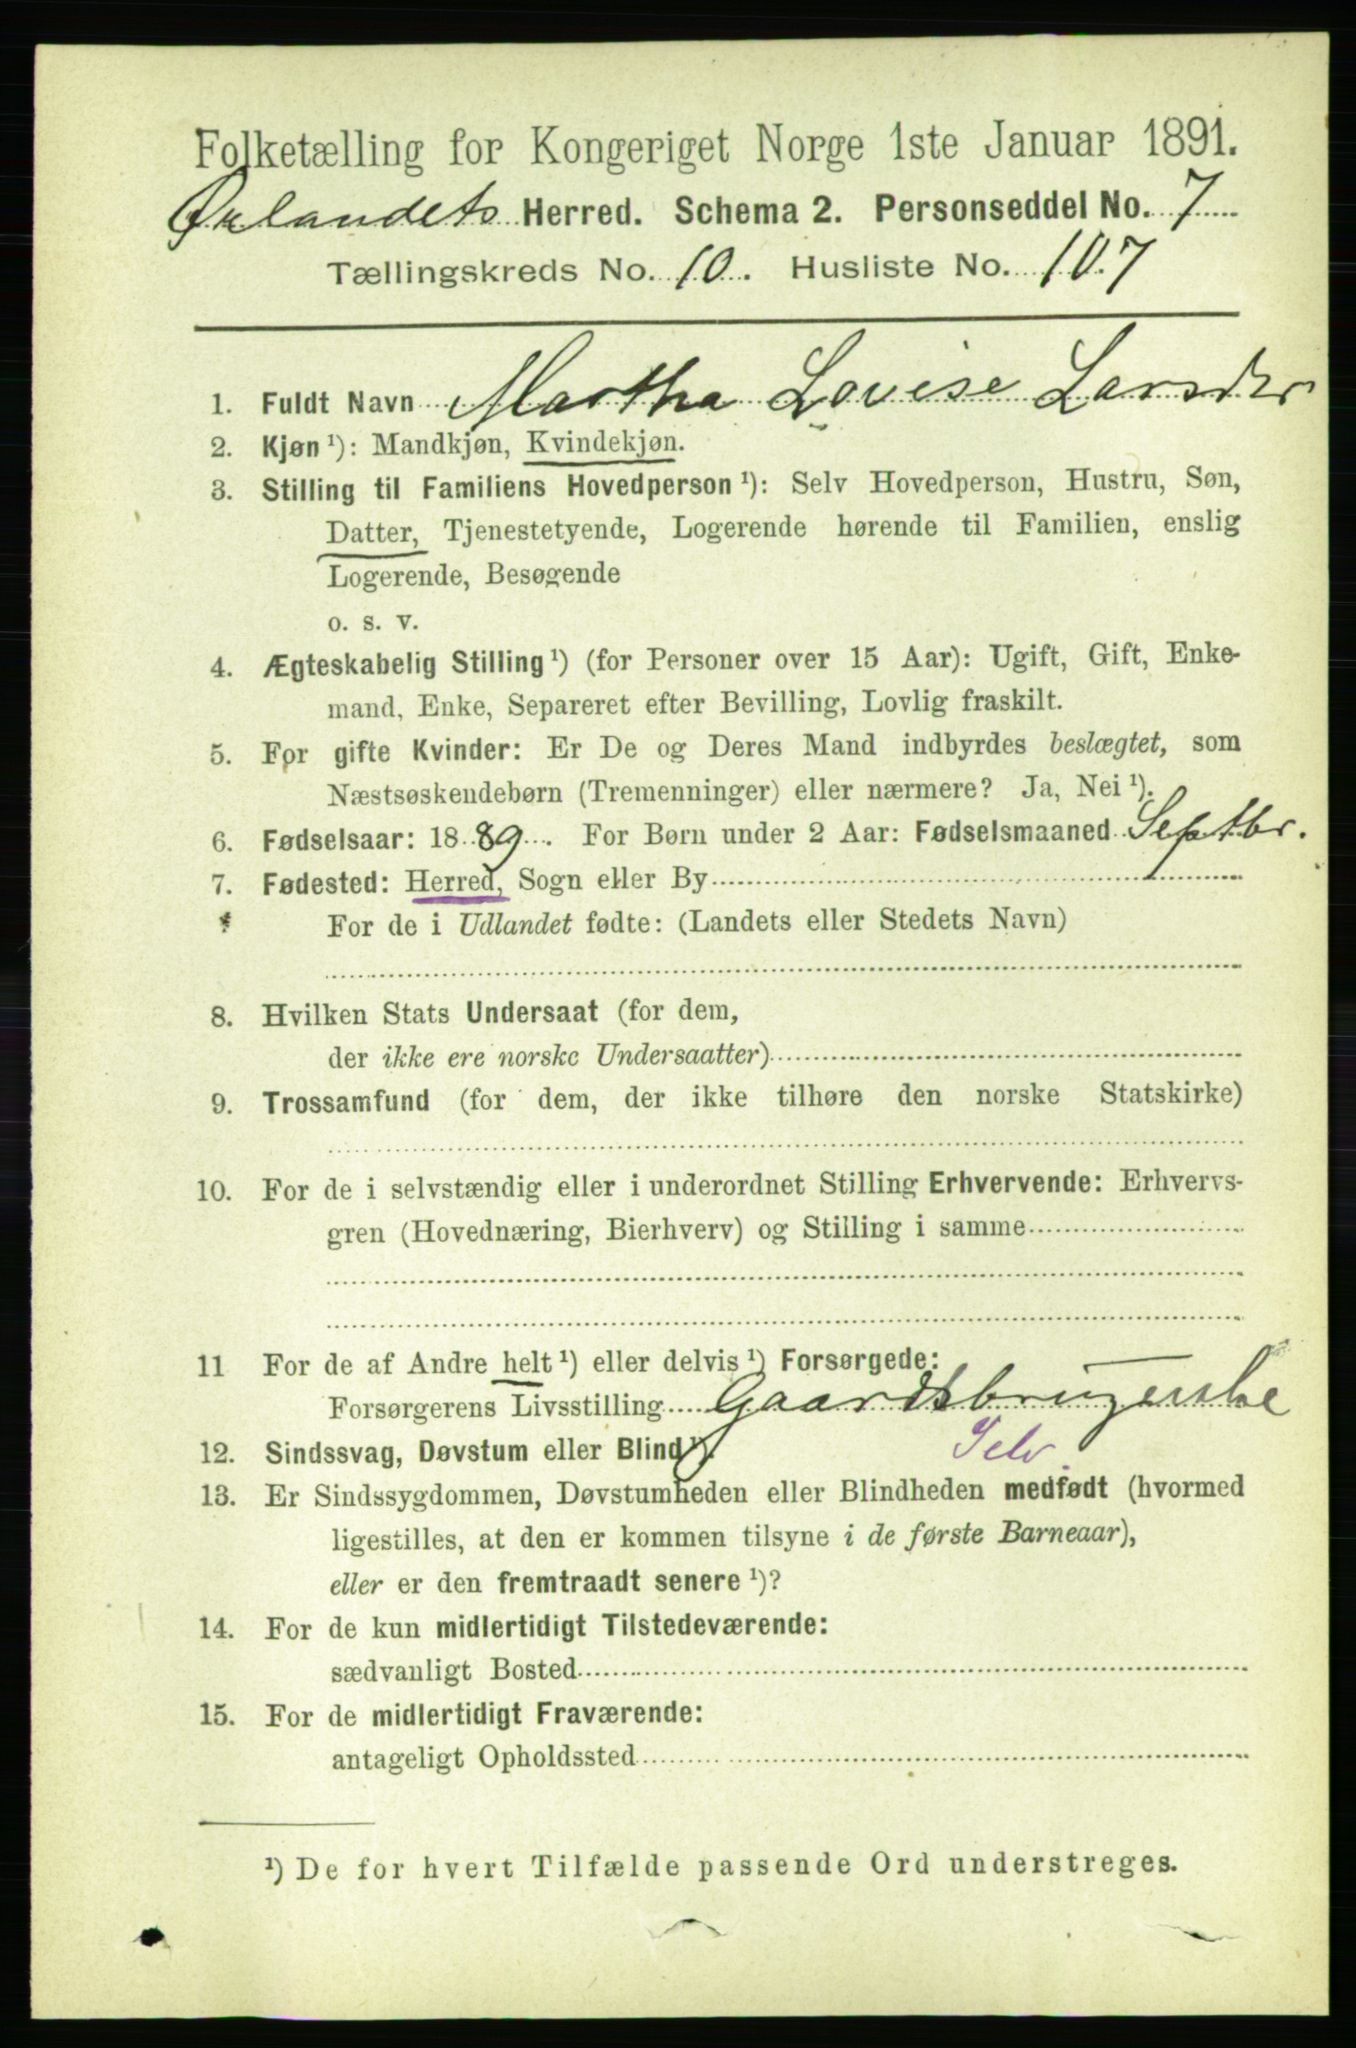 Folketælling for Kongeriget Norge 1ste Januar 1891.
Ørlandets Herred. Schema 2. Personseddel No. 7
Tællingskreds No. 10. Husliste No. 107
1. Fuldt Navn Martha Lovise Larsdtr
2. Kjøn ¹): Mandkjøn, Kvindekjøn.
3. Stilling til Familiens Hovedperson ¹): Selv Hovedperson, Hustru, Søn,
Datter, Tjenestetyende, Logerende hørende til Familien, enslig
Logerende, Besøgende
o. s. v.
4. Ægteskabelig Stilling ¹) (for Personer over 15 Aar): Ugift, Gift, Enke-
mand, Enke, Separeret efter Bevilling, Lovlig fraskilt.
5. For gifte Kvinder: Er De og Deres Mand indbyrdes beslægtet, som
Næstsøskendebørn (Tremenninger) eller nærmere? Ja, Nei ¹).
6. Fødselsaar: 1889. For Børn under 2 Aar: Fødselsmaaned Septbr.
7. Fødested: Herred, Sogn eller By
For de i Udlandet fødte: (Landets eller Stedets Navn)
8. Hvilken Stats Undersaat (for dem,
der ikke ere norske Undersaatter)
9. Trossamfund (for dem, der ikke tilhøre den norske Statskirke)
10. For de i selvstændig eller i underordnet Stilling Erhvervende: Erhvervs-
gren (Hovednæring, Bierhverv) og Stilling i samme
11 For de af Andre helt ¹) eller delvis ¹) Forsørgede:
Forsørgerens Livsstilling Gaardsbrugerske
12. Sindssvag, Døvstum eller Blind ¹). Selv
13. Er Sindssygdommen, Døvstumheden eller Blindheden medfødt (hvormed
ligestilles, at den er kommen tilsyne i de første Barneaar),
eller er den fremtraadt senere ¹)?
14. For de kun midlertidigt Tilstedeværende:
sædvanligt Bosted
15. For de midlertidigt Fraværende:
antageligt Opholdssted
¹) De for hvert Tilfælde passende Ord understreges.